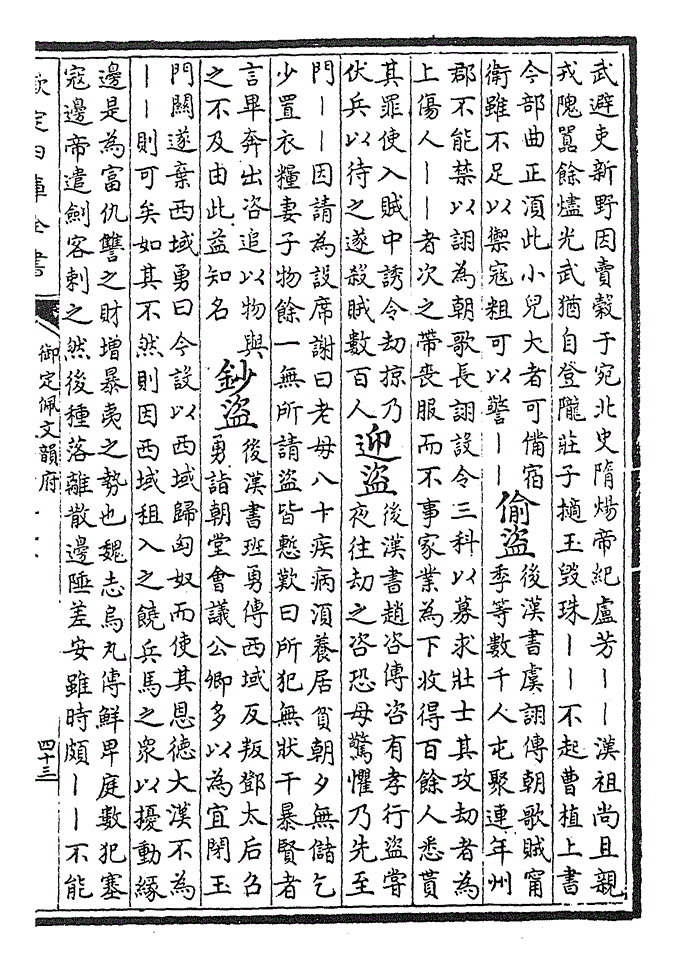 武避吏新野因賣穀于宛北史隋煬帝紀盧芳丨丨漢祖尚且親
戎隗囂餘燼光武猶自登隴莊子擿玉毀珠丨丨不起曹植上書
今部曲正湏此小兒大者可備宿
衛雖不足以禦寇粗可以警丨丨
偷盜
後漢書虞詡傳朝歌賊甯
季等數千人屯聚連年州
郡不能禁以詡為朝歌長詡設令三科以募求壯士其攻劫者為
上傷人丨丨者次之帶喪服而不事家業為下收得百餘人悉貰
其罪使入賊中誘令劫掠乃
伏兵以待之遂殺賊數百人
迎盜
後漢書趙咨傳咨有孝行盜嘗
夜往劫之咨恐母驚懼乃先至
門丨丨因請為設席謝曰老母八十疾病湏養居貧朝夕無儲乞
少置衣糧妻子物餘一無所請盜皆慙歎曰所犯無狀干暴賢者
言畢奔出咨追以物與
之不及由此益知名
鈔盜
後漢書班勇傳西域反叛鄧太后召
勇詣朝堂會議公卿多以為宜閉玉
門關遂棄西域勇曰今設以西域歸匈奴而使其恩德大漢不為
丨丨則可矣如其不然則因西域租入之饒兵馬之衆以擾動緣
邊是為富仇讐之財增暴夷之勢也魏志烏丸傳鮮卑庭數犯塞
寇邊帝遣劍客刺之然後種落離散邊陲差安雖時頗丨丨不能
欽定四庫全書
御定佩文韻府
四十三